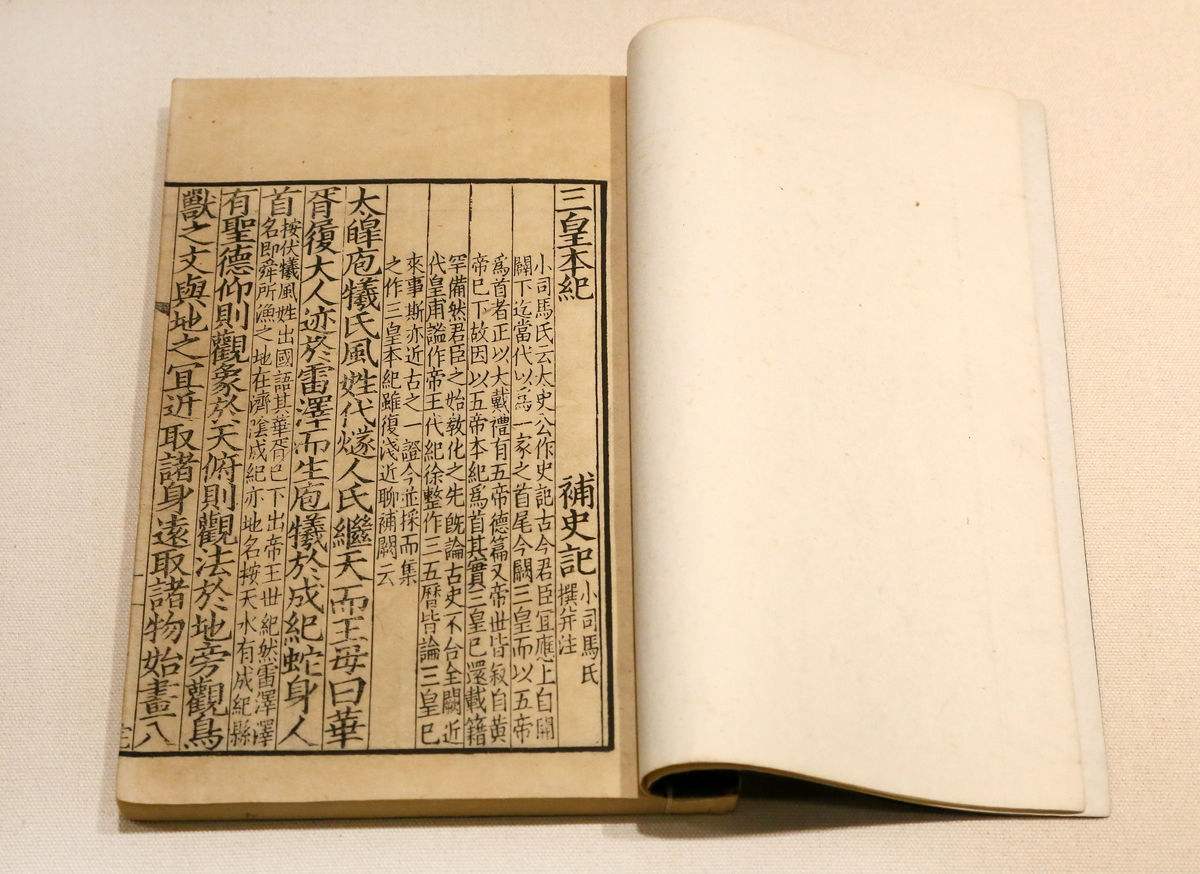 三皇本紀 補史記 小司馬氏
撰并注
小司馬氏云太史公作史記古今君臣宜應上自開
闢下迄當代以爲一家之首尾今闕三皇而以五帝
爲首者正以大戴禮有五帝德篇又帝世皆叙自黃
帝已下故因以五帝本紀爲首其實三皇已還載籍
罕備然君臣之始敎化之先旣論古史不合全闕近
代皇甫謐作帝王代紀徐整作三五曆皆論三皇已
來事斯亦近古之一證今並採而集
之作三皇本紀雖復淺近聊補闕云
太皥庖犧氏風姓代燧人氏繼天而王母曰華
胥履大人迹於雷澤而生庖犧於成紀蛇身人
首
按伏犧風姓出國語其華胥已下出帝王世紀然雷澤澤
名即舜所漁之地在濟陰成紀亦地名按天水有成紀縣
有聖德仰則觀象於天俯則觀法於地旁觀鳥
獸之文與地之宜近取諸身遠取諸物始畫八